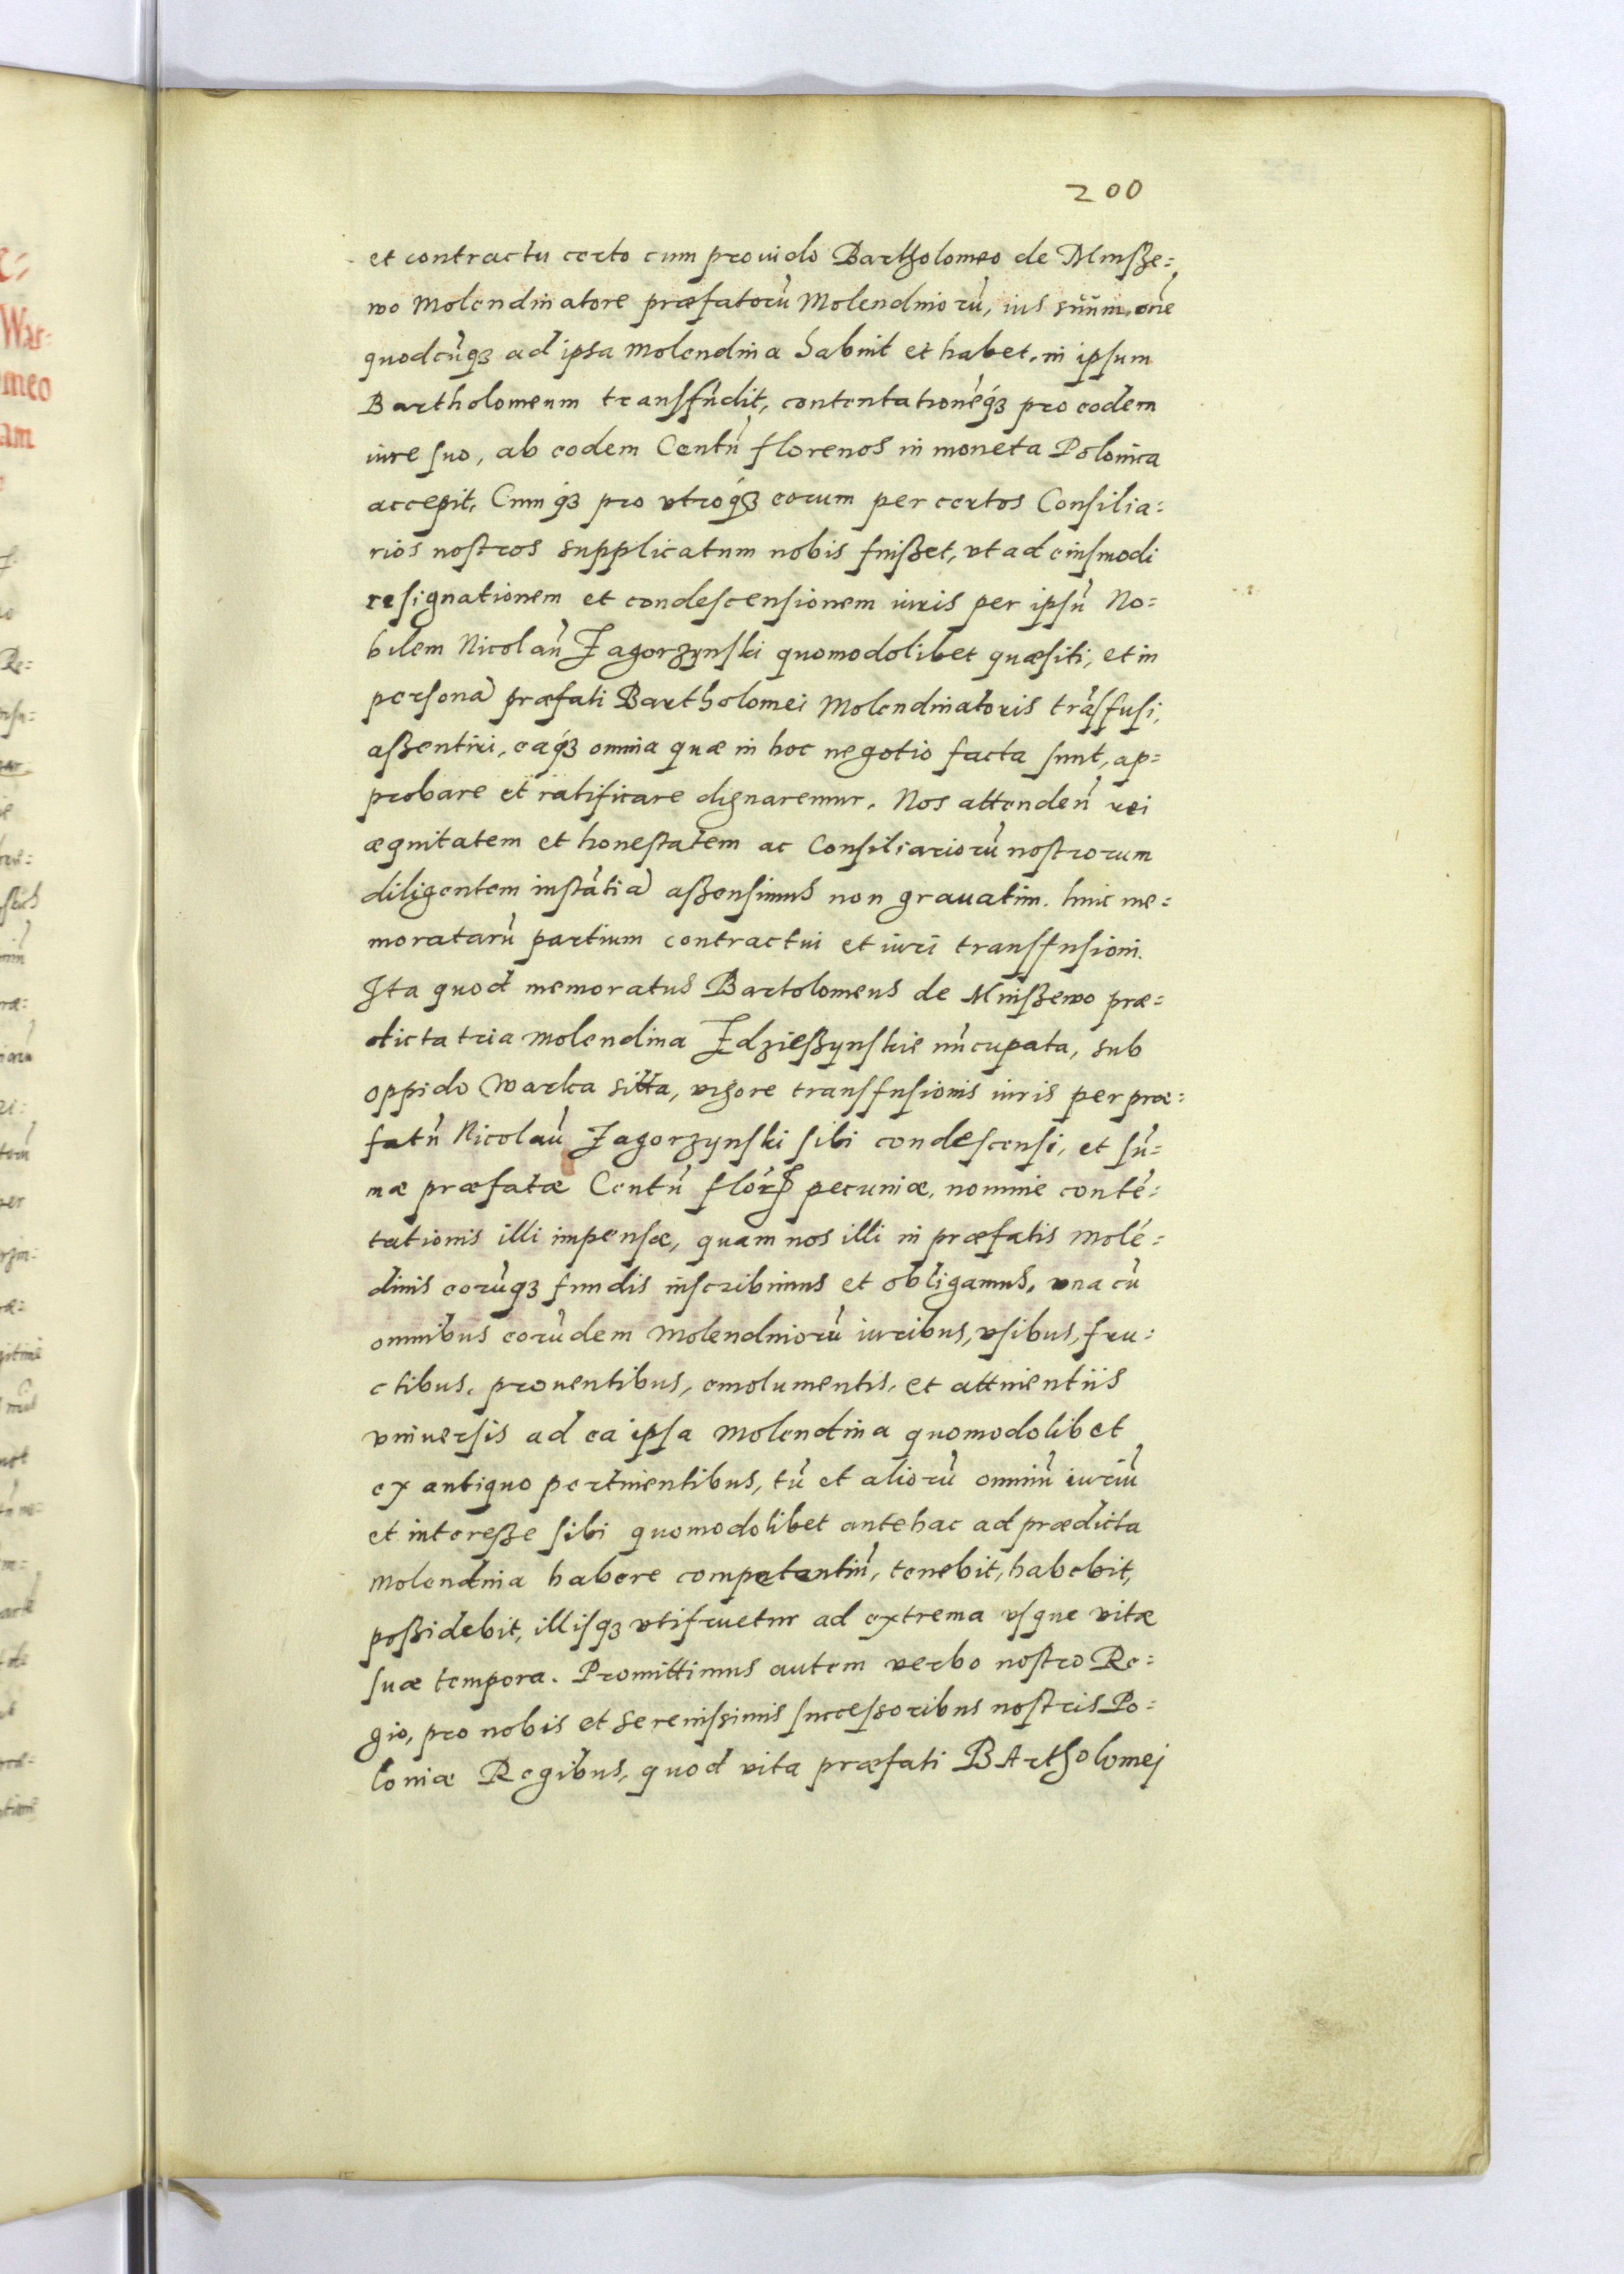 200
et contractu certo cum prouido Bartholomeo de Mnisze=
wo Molendinatore præfatorũ Molendinorũ, ius suum om̃e
quodcũqꝫ ad ipsa Molendina habuit et habet, in ipsum
Bartholomeum transfudit, contentationẽqꝫ pro eodem
iure suo, ab eodem Centũ florenos in moneta Polonica
accepit, Cumqꝫ pro vtroqꝫ eorum per certos Consilia=
rios nostros supplicatum nobis fuisset, vt ad eiusmodi
resignationem et condescensionem iuris per ipsũ No=
bilem Nicolaũ Zagorzynski quomodolibet quæsiti, et in
personã præfati Bartholomei Molendinatoris trãsfusi,
assentiri, eaqꝫ omnia quæ in hoc negotio facta sunt, ap=
probare et ratificare dignaremur. Nos attendeñ rei
æquitatem et honestatem ac Consiliariorũ nostrorum
diligentem instãtiã assensimus non grauatim. huic me=
moratarũ partium contractui et iuri transfusioni.
Ita quod memoratus Bartolomeus de Mniszewo præ=
dicta tria Molendina Zdzieszynskie nũcupata, sub
oppido Warka sitta, vigore transfusionis iuris per præ=
fatũ Nicolaũ Zagorzynski sibi condescensi, et sũ=
mæ præfatæ Centũ flor̃ pecuniæ, nomine contẽ=
tationis illi impensæ, quam nos illi in præfatis Molẽ=
dinis eorũqꝫ fundis inscribimus et obligamus, vna cũ
omnibus eorũdem Molendinorũ iuribus, vsibus, fru=
ctibus, prouentibus, emolumentis, et attinentiis
vniuersis ad ea ipsa Molendina quomodolibet
ex antiquo pertinentibus, tũ et aliorũ omniũ iuriũ
et interesse sibi quomodolibet antehac ad prædicta
Molendina habere competentiũ, tenebit, habebit,
possidebit, illisqꝫ vtifruetur ad extrema vsque vitæ
suæ tempora. Promittimus autem verbo nostro Re=
gio, pro nobis et Serenissimis successoribus nostris Po=
loniæ Regibus, quod vita præfati BArtholomej